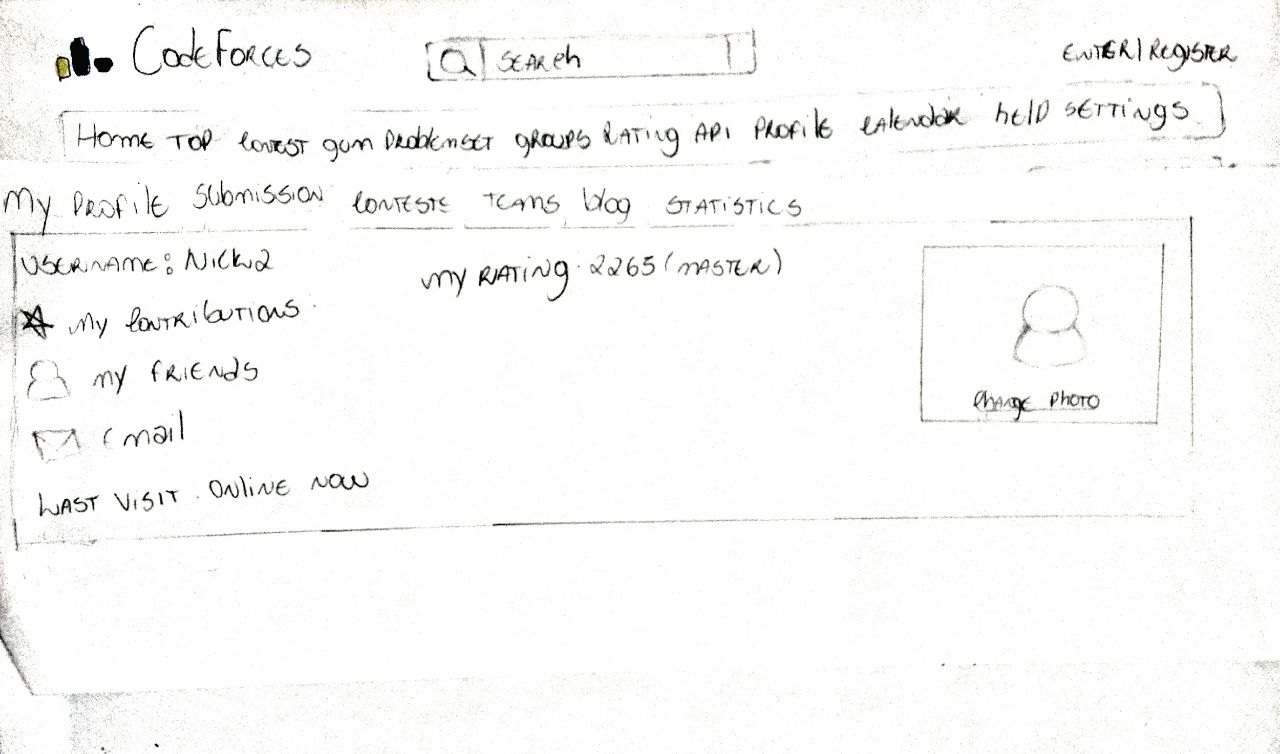 CodeForces
SEARCh
ENTER/REGISTER
HomE TOP CONTEST gym PRoblEmSET gROUPS RATing API PROFilE CAlENDAR hElp SETTiNgS
My PROFilE SUbmiSSiON CONTESTS TEAMS blog STATISTICS
USERNAME: NiCK2
My RATING. 2265 (MASTER)
My CONTRIbUTIONS
My FRiENdS
Email
ChANgE PhOTO
LAST VISIT. ONliNE NOW